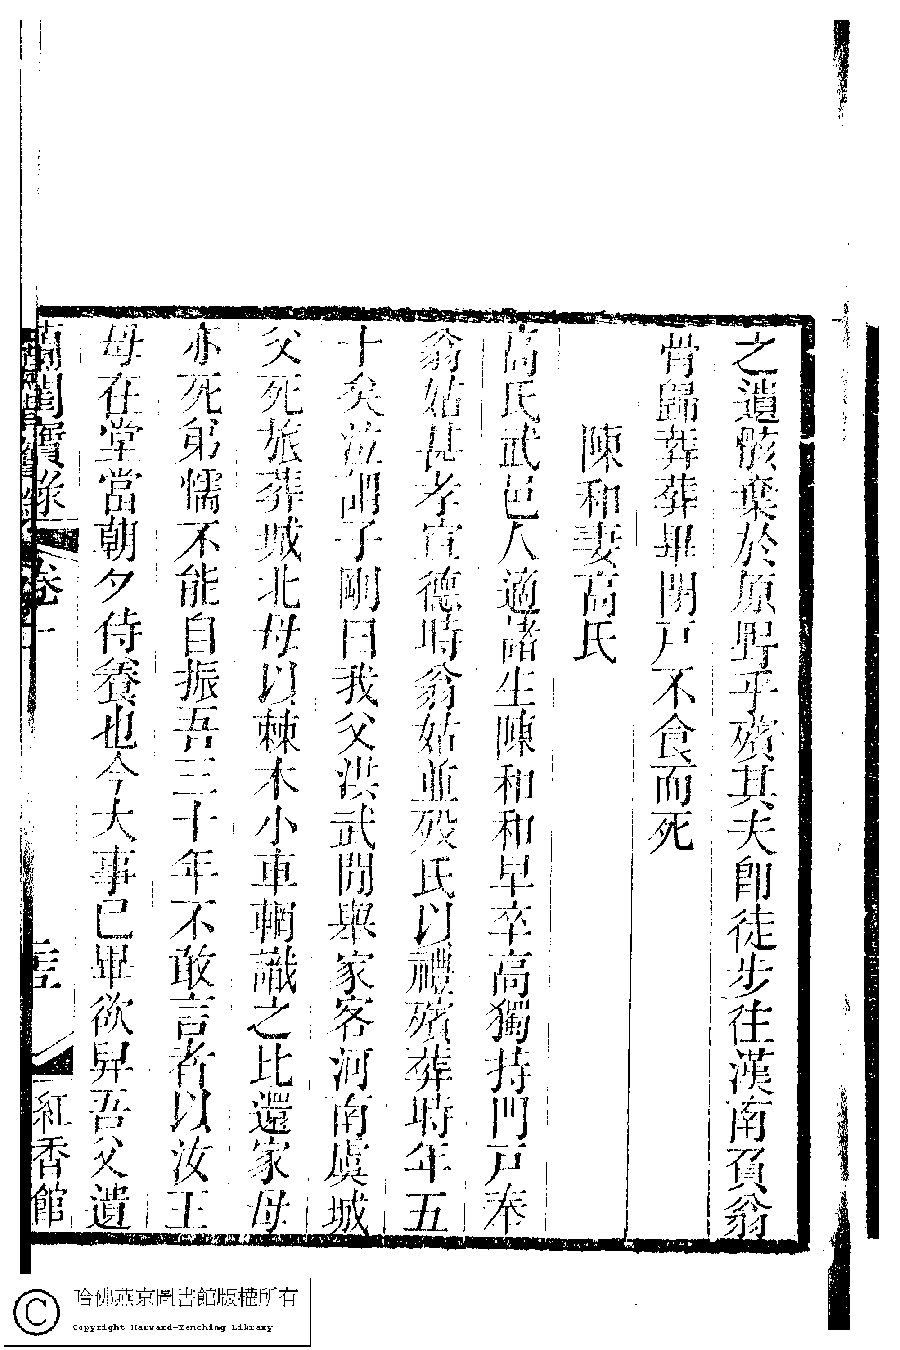 之遺骸棄於原野乎殯其夫即徒步往漢南負翁
骨歸葬葬畢閉戸不食而死
陳和妻高氏
高氏武邑人適諸生陳和和早卒高獨持門戸奉
翁姑甚孝宣德時翁姑並歿氏以禮殯葬時年五
十矣泣謂子剛曰我父洪武間舉家客河南虞城
父死旅葬城北母以棘木小車輞識之比還家母
亦死弟懦不能自振吾三十年不敢言者以汝王
母在堂當朝夕侍養也今大事已畢欲舁吾父遺
蘭閨寶錄 卷
紅香館
哈佛燕京圖書館版權所有
Copyright Harvard-Yenching Library